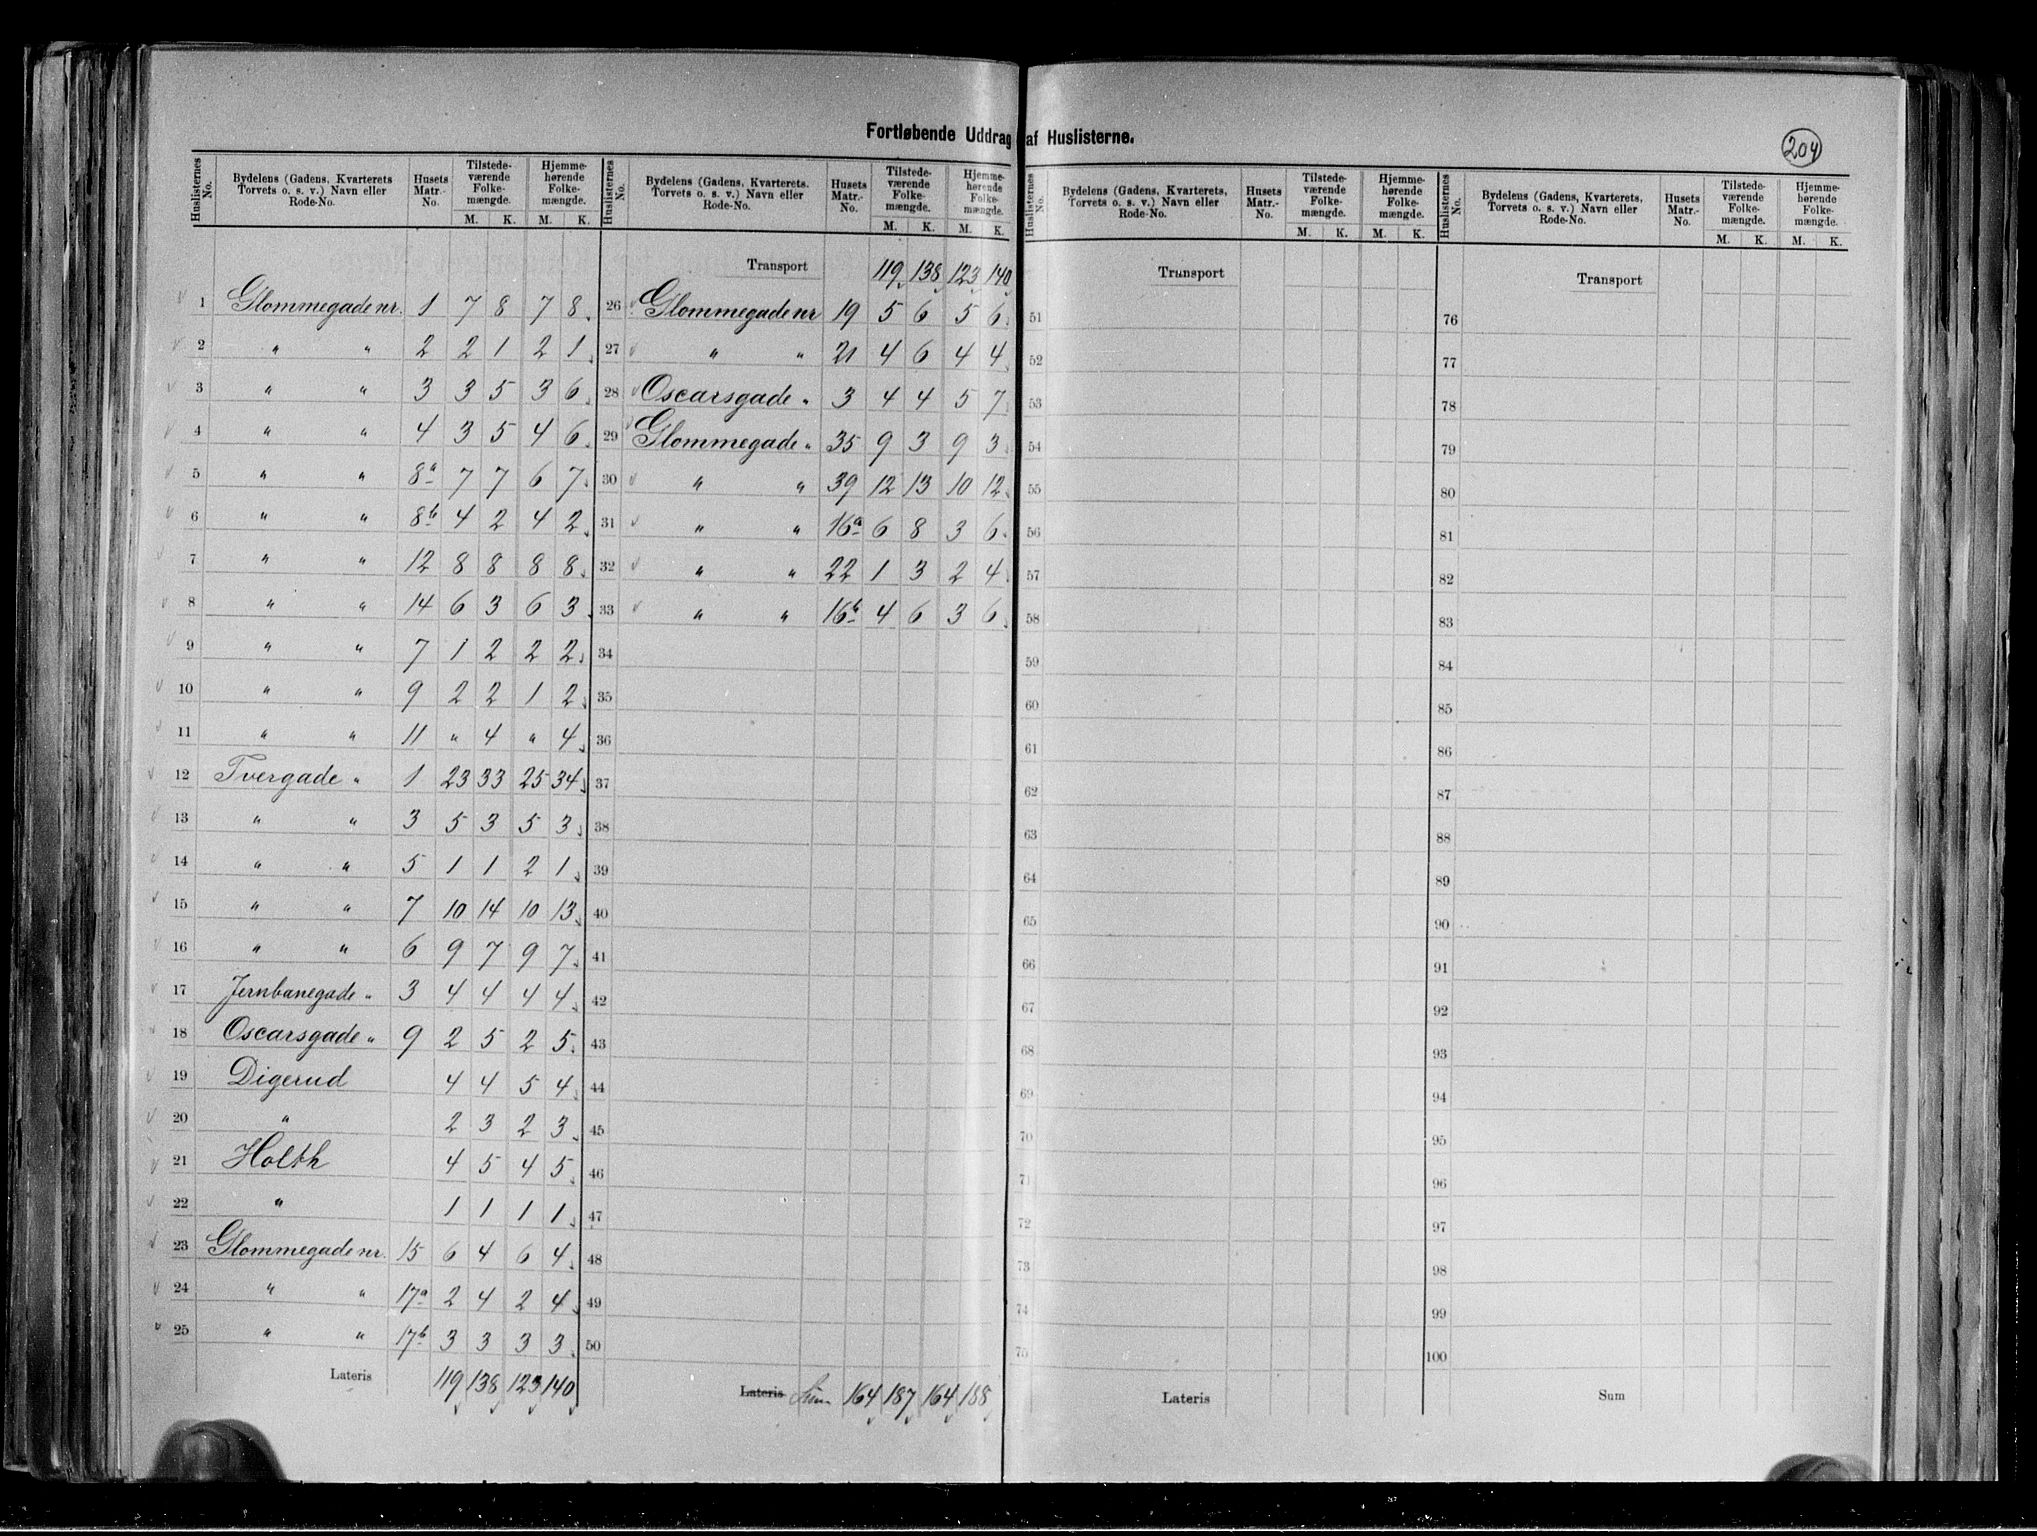 Fortløbende Uddrag af Huslisterne.
204
Huslisternes No. | Bydelens (Gadens, Kvarterets Torvets o. s. v.) Navn eller Rode-No. | Husets Matr.-No. | Tilstede-værende Folke-mængde. M. K. | Hjemme-hørende Folke-mængde. M. K.
1 Glommegade nr. 1 7 8 7 8
2 " " 2 2 1 2 1
3 " " 3 3 5 3 6
4 " " 4 3 5 4 6
5 " " 8a 7 7 6 7
6 " " 8b 4 2 4 2
7 " " 12 8 8 8 8
8 " " 14 6 3 6 3
9 " " 7 1 2 2 2
10 " " 9 2 2 1 2
11 " " 11 " 4 " 4
12 Tvergade " 1 23 33 25 34
13 " " 3 5 3 5 3
14 " " 5 1 1 2 1
15 " " 7 10 14 10 13
16 " " 6 9 7 9 7
17 Jernbanegade " 3 4 4 4 4
18 Oscarsgade " 9 2 5 2 5
19 Digerud 4 4 5 4
20 " 2 3 2 3
21 Holth 4 5 4 5
22 " 1 1 1 1
23 Glommegade nr. 15 6 4 6 4
24 " " 17a 2 4 2 4
25 " " 17b 3 3 3 3
Lateris 119 138 123 140
Huslisternes No. | Bydelens (Gadens, Kvarterets. Torvets o. s. v.) Navn eller Rode-No. | Husets Matr.-No. | Tilstede-værende Folke-mængde. M. K. | Hjemme-hørende Folke-mængde. M. K.
Transport 119 138 123 140
26 Glommegade nr 19 5 6 5 6
27 " " 21 4 6 4 4
28 Oscarsgade " 3 4 4 5 7
29 Glommegade " 35 9 3 9 3
30 " " 39 12 13 10 12
31 " " 16a 6 8 3 6
32 " " 22 1 3 2 4
33 " " 16b 4 6 3 6
34
35
36
37
38
39
40
41
42
43
44
45
46
47
48
49
50
Lateris Sum 164 187 164 188
Huslisternes No. | Bydelens (Gadens, Kvarterets, Torvets o. s. v.) Navn eller Rode-No. | Husets Matr.-No. | Tilstede-værende Folke-mængde. M. K. | Hjemme-hørende Folke-mængde. M. K.
Transport
51
52
53
54
55
56
57
58
59
60
61
62
63
64
65
66
67
68
69
70
71
72
73
74
75
Lateris
Huslisternes No. | Bydelens (Gadens, Kvarterets, Torvets o. s. v.) Navn eller Rode-No. | Husets Matr.-No. | Tilstede-værende Folke-mængde. M. K. | Hjemme-hørende Folke-mængde. M. K.
Transport
76
77
78
79
80
81
82
83
84
85
86
87
88
89
90
91
92
93
94
95
96
97
98
99
100
Sum